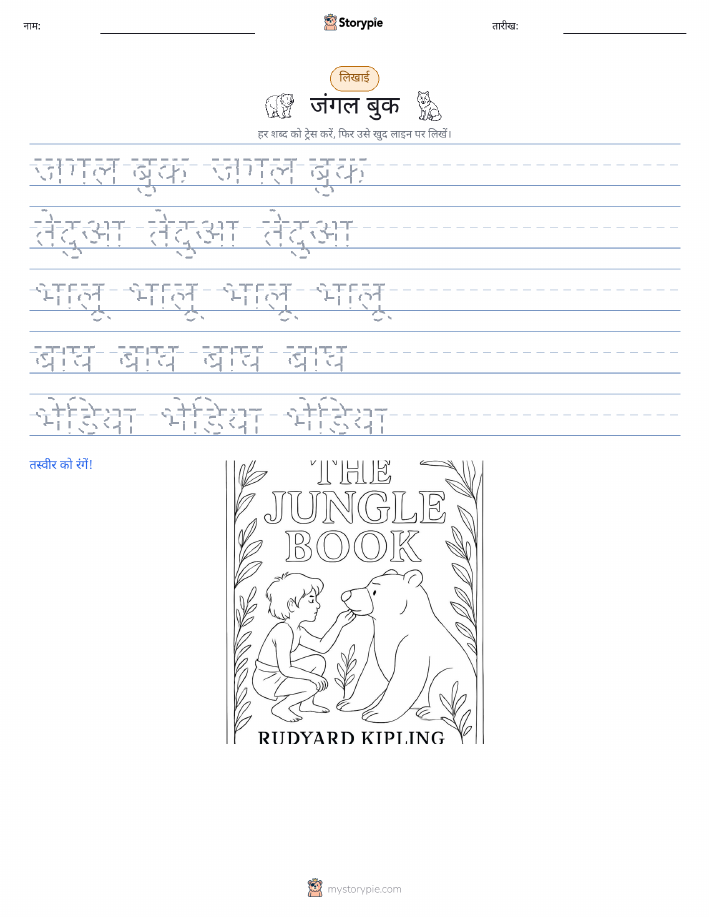 नाम: Storypie तारीख:
लिखाई
जंगल बुक
हर शब्द को ट्रेस करें, फिर उसे खुद लाइन पर लिखें।
जंगल बुक जंगल बुक
तेंदुआ तेंदुआ तेंदुआ
भालू भालू भालू भालू
बाघ बाघ बाघ बाघ
भेड़िया भेड़िया भेड़िया
तस्वीर को रंगें!
THE
JUNGLE
BOOK
RUDYARD KIPLING
mystorypie.com